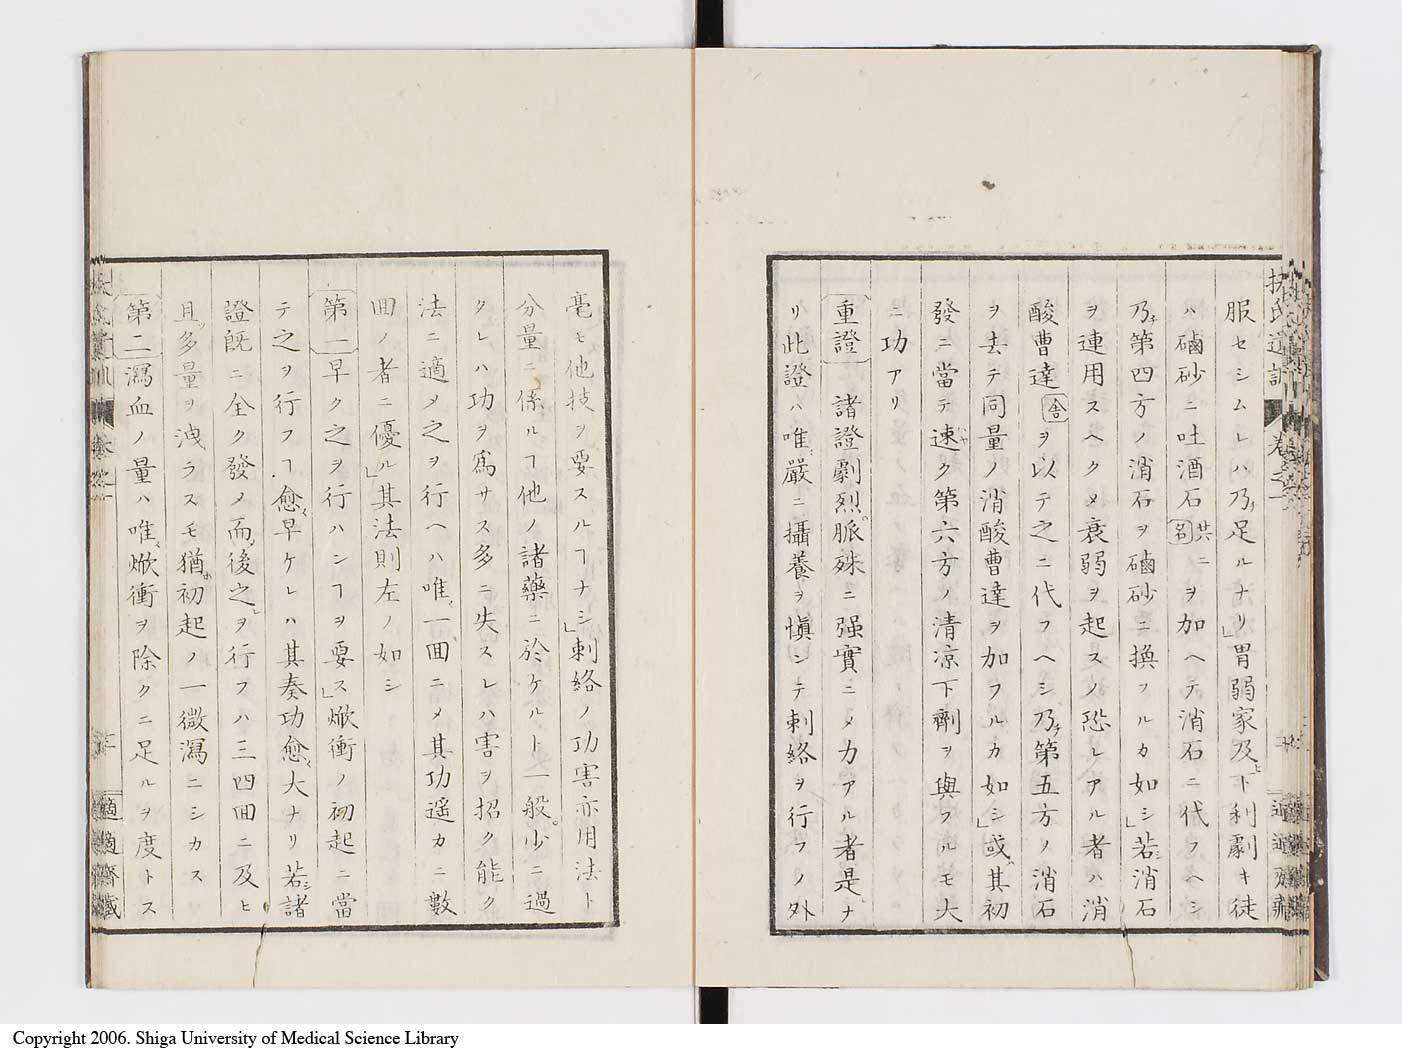 扶氏遺訓 卷之一
適適齋藏
服セシムレハ乃チ足ルナリ」胃弱家及ヒ下利劇キ徒
ハ磠砂ニ吐酒石共ニヲ加ヘテ消石ニ代フヘシ
乃チ第四方ノ消石ヲ磠砂ニ換フルカ如シ」若シ消石
ヲ連用スヘクメ衰弱ヲ起スノ恐レアル者ハ消
酸曹達舎ヲ以テ之ニ代フヘシ乃チ第五方ノ消石
ヲ去テ同量ノ消酸曹達ヲ加フルカ如シ」或ハ其初
發ニ當テ速ク第六方ノ清涼下劑ヲ與フルモ大
ニ功アリ
重證 諸證劇烈。脈殊ニ强實ニメ力アル者是ナ
リ此證ハ唯嚴ニ攝養ヲ愼ンテ刺絡ヲ行フノ外
毫モ他技ヲ要スルヿナシ」刺絡ノ功害亦用法ト
分量ニ係ルヿ他ノ諸藥ニ於ケルト一般。少ニ過
クレハ功ヲ爲サス多ニ失スレハ害ヲ招ク能ク
法ニ適メ之ヲ行ヘハ唯一囬ニメ其功遥カニ數
囬ノ者ニ優ル」其法則左ノ如シ
第一 早ク之ヲ行ハンヿヲ要ス」焮衝ノ初起ニ當
テ之ヲ行フヿ愈早ケレハ其奏功愈大ナリ若シ諸
證既ニ全ク發メ而後之ヲ行フハ三四囬ニ及ヒ
且ツ多量ヲ洩ラスモ猶初起ノ一微瀉ニシカス
第二 瀉血ノ量ハ唯焮衝ヲ除クニ足ルヲ度トス
適適齋藏
Copyright 2006. Shiga University of Medical Science Library